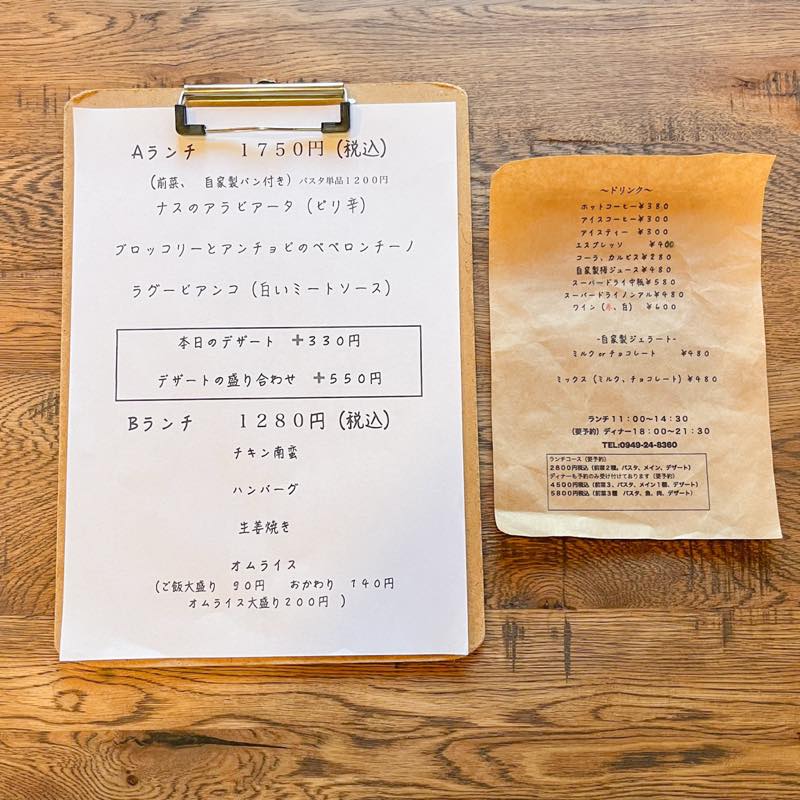 Aランチ　1750円(税込)
(前菜、　自家製パン付き) パスタ単品1200円
ナスのアラビアータ (ピリ辛)
ブロッコリーとアンチョビのペペロンチーノ
ラグービアンコ (白いミートソース)
本日のデザート　+330円
デザートの盛り合わせ　+550円
Bランチ　1280円(税込)
チキン南蛮
ハンバーグ
生姜焼き
オムライス
(ご飯大盛り　90円　おかわり　140円
オムライス大盛り200円 )
～ドリンク～
ホットコーヒー¥380
アイスコーヒー¥300
アイスティー　¥300
エスプレッソ　¥400
コーラ、カルピス¥280
自家製梅ジュース¥480
スーパードライ中瓶¥580
スーパードライノンアル¥480
ワイン (赤、白)　¥600
-自家製ジェラート-
ミルクorチョコレート　¥480
ミックス (ミルク、チョコレート) ¥480
ランチ11：00～14：30
(要予約) ディナー18：00～21：30
TEL:0949-24-8360
ランチコース (要予約)
2800円税込 (前菜2種。パスタ、メイン、デザート)
ディナーも予約のみ受け付けております (要予約)
4500円税込 (前菜3、パスタ、メイン1種、デザート)
5800円税込 (前菜3種　パスタ、魚、肉、デザート)